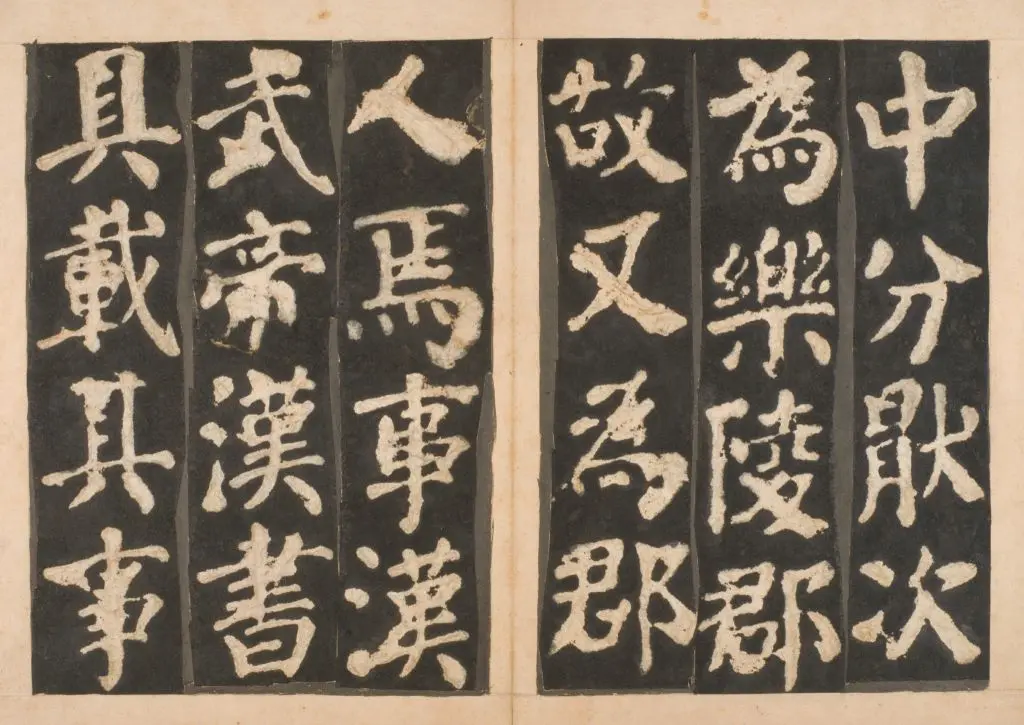 中分猒次
為樂陵郡
故又為郡
人焉事漢
武帝漢書
具載其事